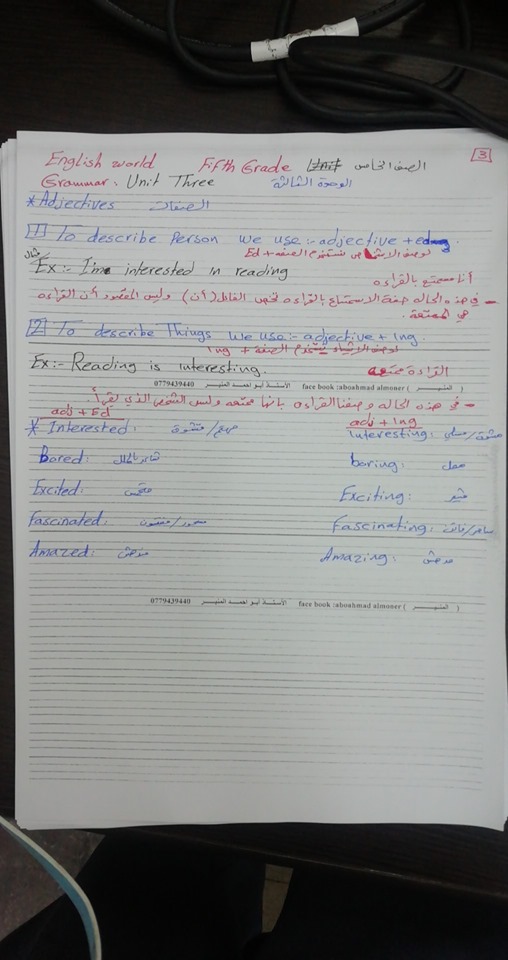 English world Fifth Grade الصف الخامس 3
Grammar: Unit Three الوحدة الثالثة
* Adjectives الصفات
1 To describe Person we use:- adjective + ed
لوصف الاشخاص نستخدم الصفه + Ed
مثال
Ex:- I'm interested in reading
أنا مستمتع بالقراءه
- في هذه الحاله صفة الاستمتاع بالقراءه تخص الفاعل (أنا) وليس المقصود أن القراءه
هي الممتعة.
2 To describe Things we use:- adjective + Ing
لوصف الاشياء نستخدم الصفة + Ing
Ex:- Reading is interesting. القراءة ممتعه
0779439440 الأستاذ أبو احمد المنيـــر face book :aboahmad almoner ( المنيـــر )
- في هذه الحاله وصفنا القراءه بانها ممتعه وليس الشخص الذي يقرأ.
adj + Ed adj + Ing
* Interested: مهتم/ Interesting:
Bored: شاعر بالملل boring: ممل
Excited: متحمس Exciting: مثير
Fascinated: مسحور/مفتون Fascinating: ساحر/فاتن
Amazed: مندهش Amazing: مدهش
0779439440 الأستاذ أبو احمد المنيـــر face book :aboahmad almoner ( المنيـــر )